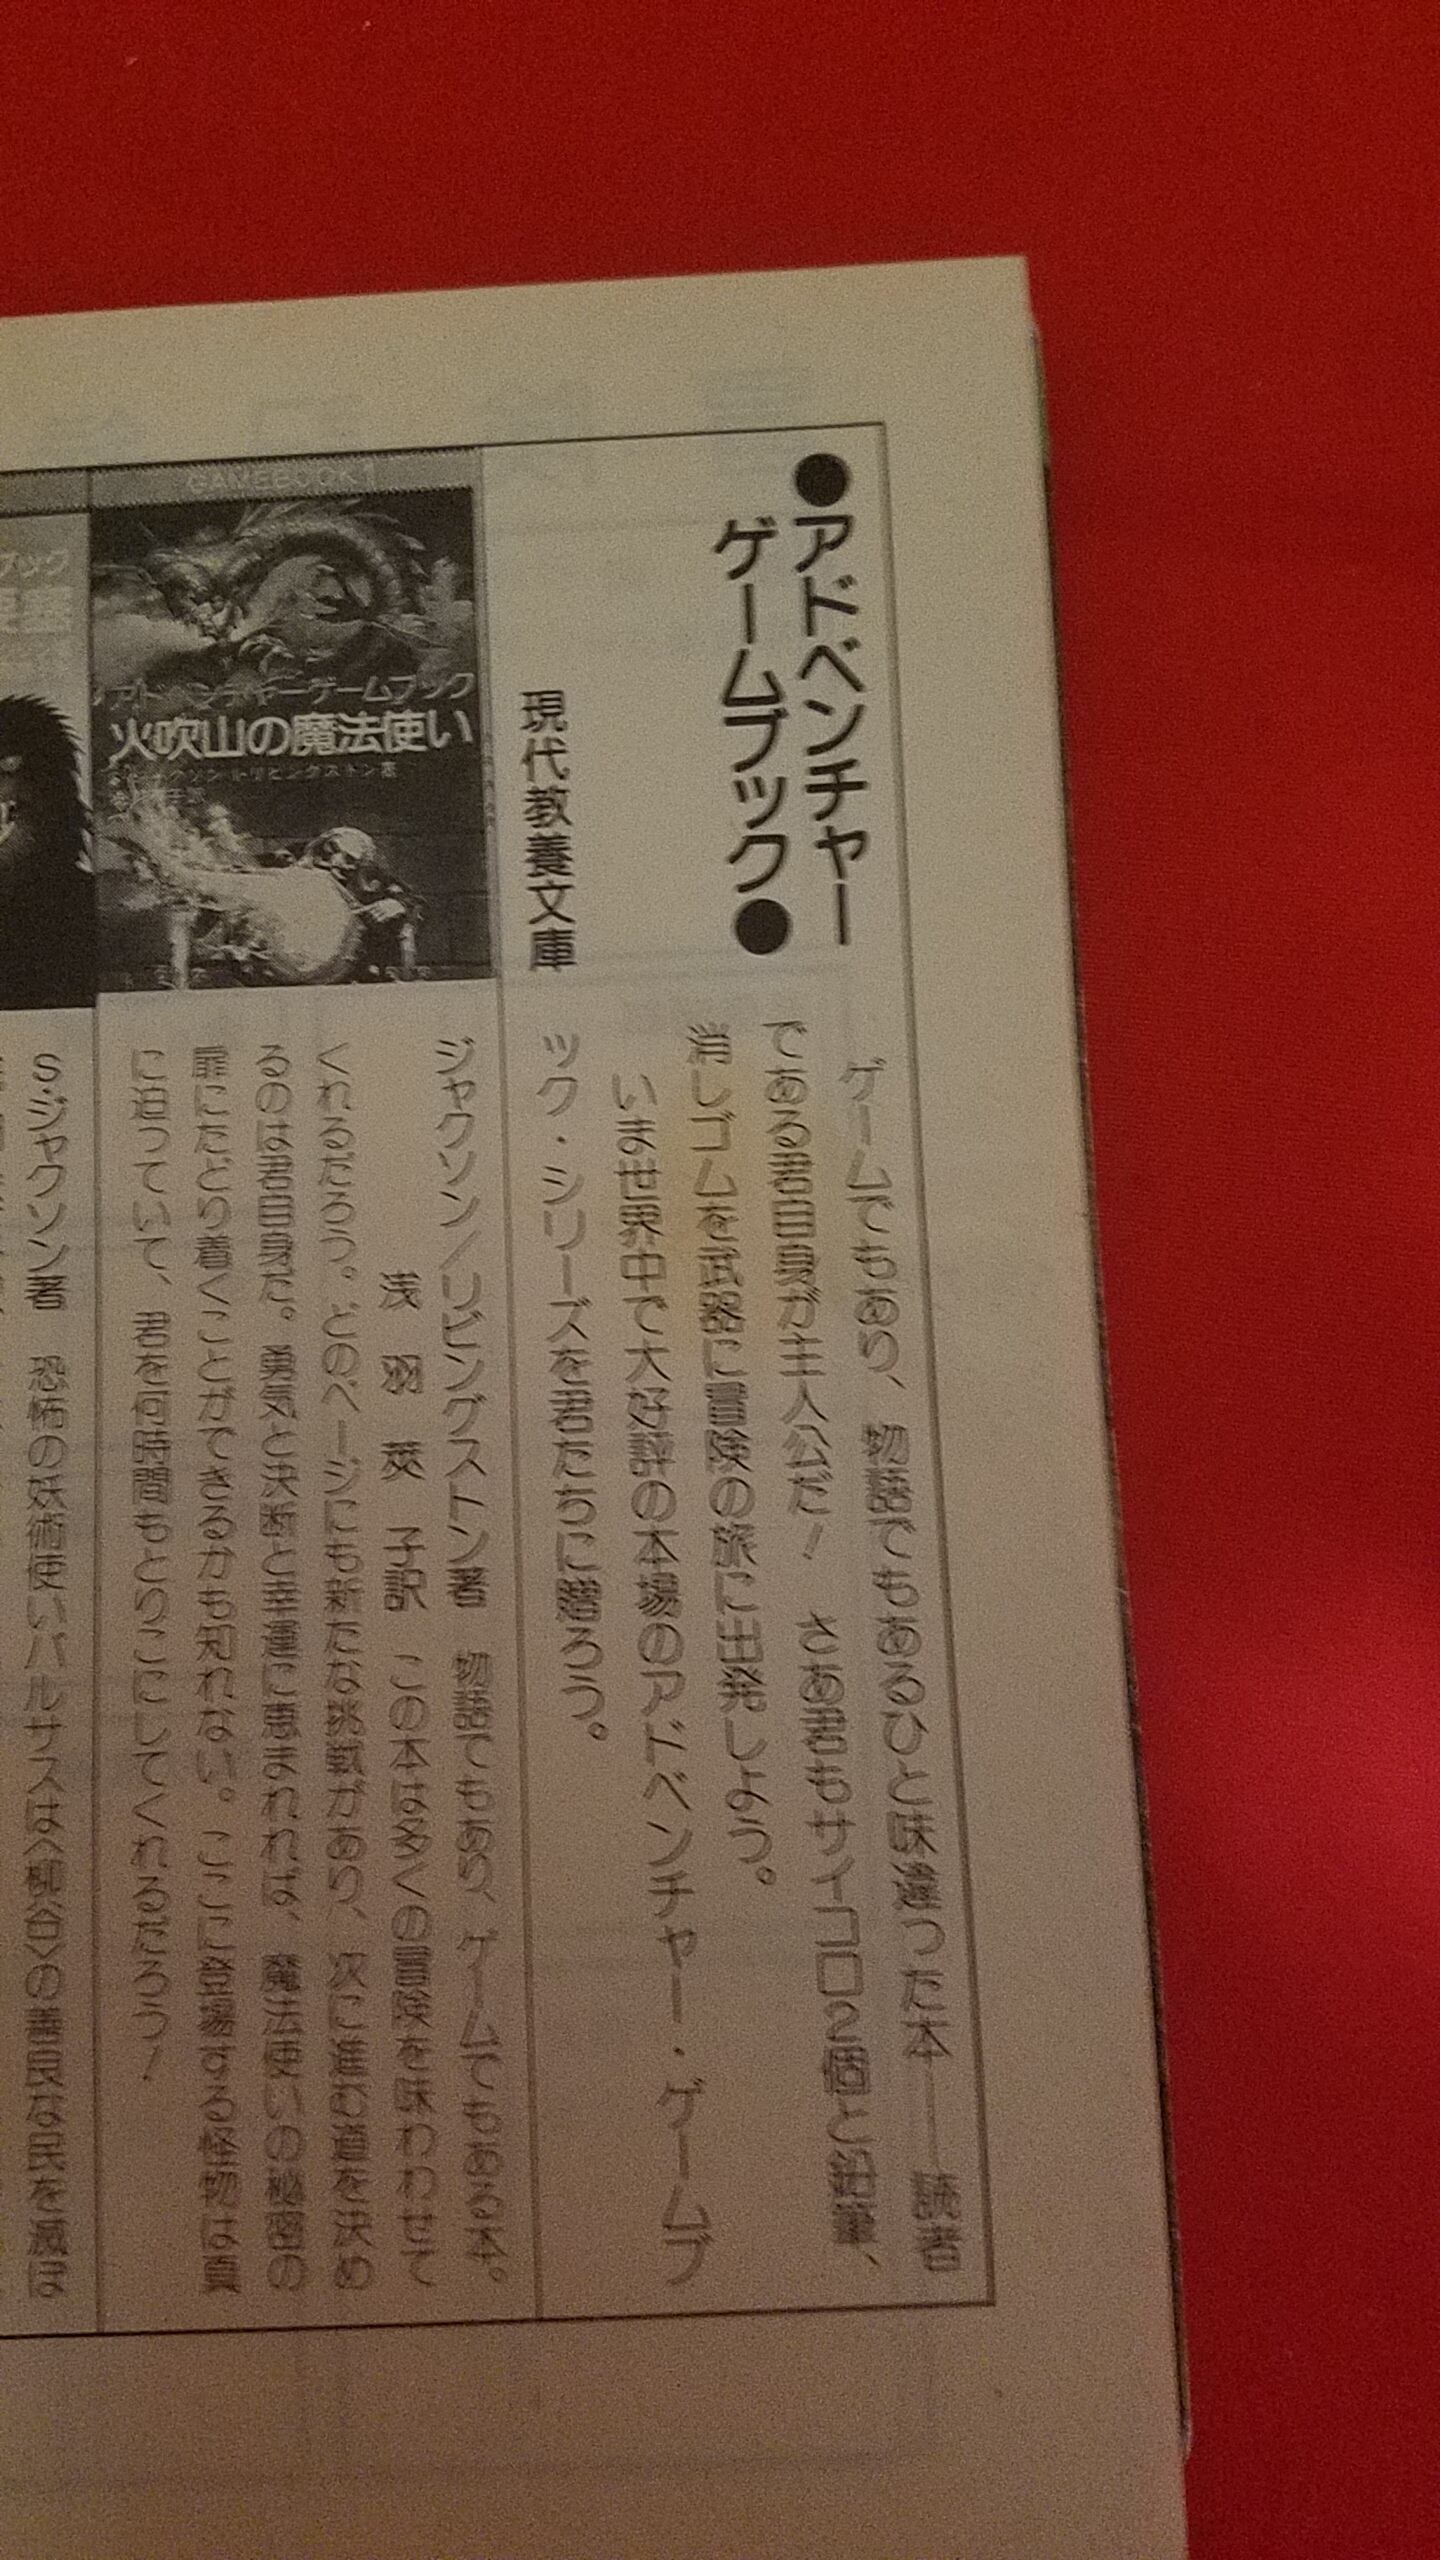 ●アドベンチャー
ゲームブック●
現代教養文庫
ゲームでもあり、物語でもあるひと味違った本――読者
である君自身が主人公だ！　さあ君もサイコロ2個と鉛筆、
消しゴムを武器に冒険の旅に出発しよう。
いま世界中で大好評の本場のアドベンチャー・ゲームブ
ック・シリーズを君たちに贈ろう。
GAMEBOOK 1
アドベンチャーゲームブック
火吹山の魔法使い
ジャクソン／リビングストン著　物語でもあり、ゲームでもある本。
浅羽莢子訳　この本は多くの冒険を味わわせて
くれるだろう。どのページにも新たな挑戦があり、次に進む道を決め
るのは君自身だ。勇気と決断と幸運に恵まれれば、魔法使いの秘密の
扉にたどり着くことができるかも知れない。ここに登場する怪物は真
に迫っていて、君を何時間もとりこにしてくれるだろう！
ブック
S・ジャクソン著　恐怖の妖術使いバルサスは〈柳谷〉の善良な民を滅ぼ